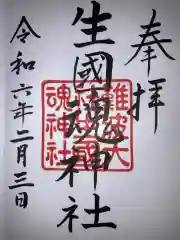 奉拝
生國魂神社
令和六年二月三日
難波大
社生國
魂神社